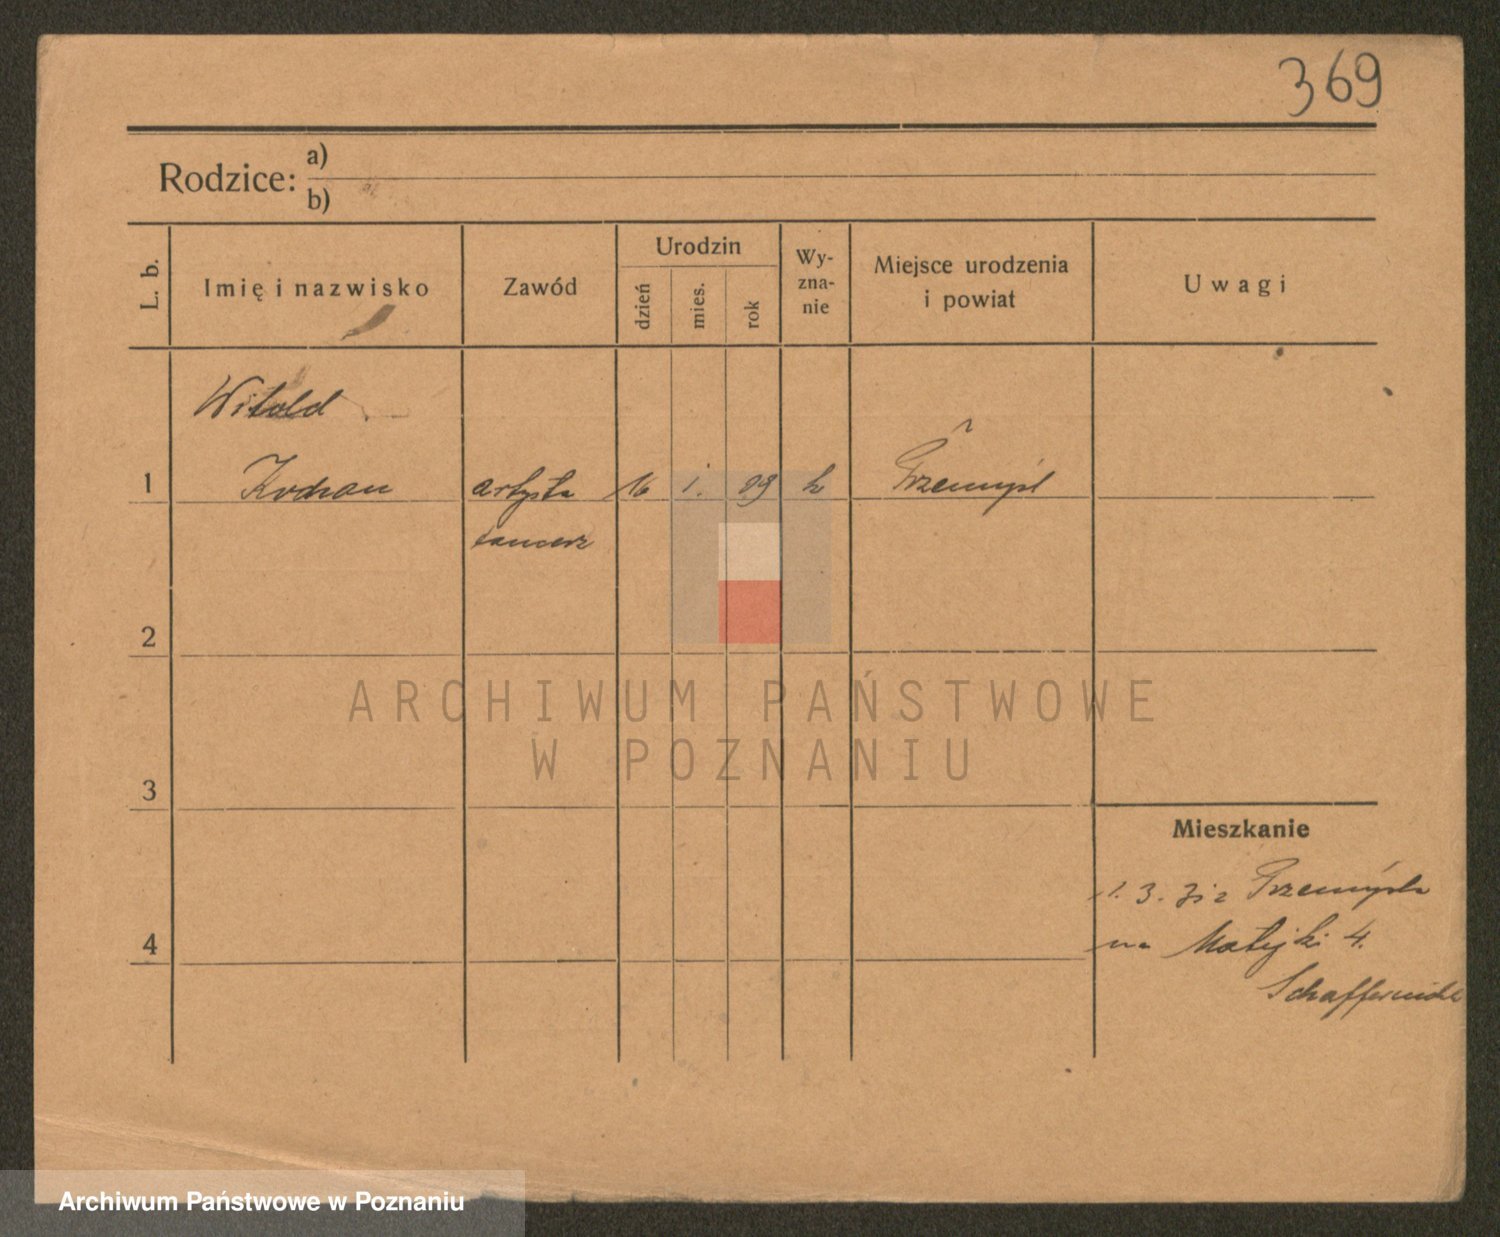 369
Rodzice: a)
b)
L. b.
Imię i nazwisko
Zawód
Urodzin
dzień
mies.
rok
Wy-
zna-
nie
Miejsce urodzenia
i powiat
Uwagi
Witold
1 Kochan artysta 16 1. 09 k Przemyśl
tancerz
2
3
4
Mieszkanie
1. 3. z Przemyśla
na Matejki 4.
ARCHIWUM PAŃSTWOWE
W POZNANIU
Archiwum Państwowe w Poznaniu